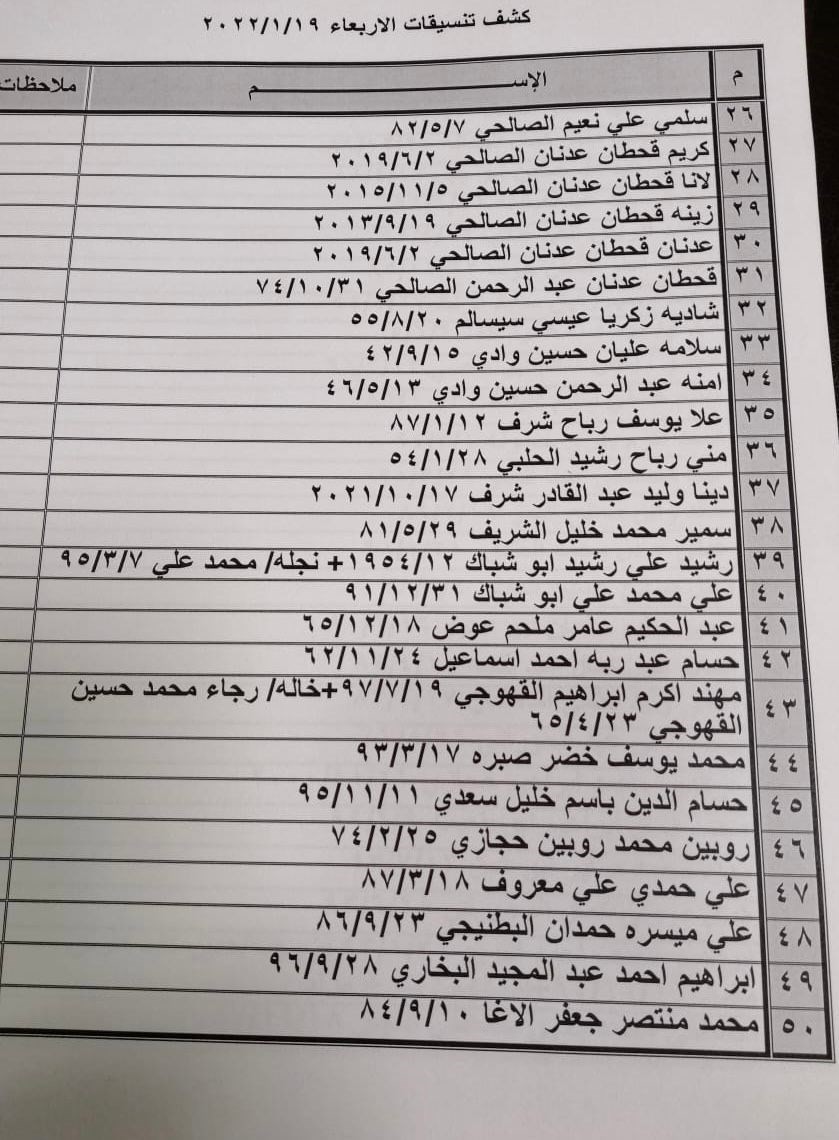 كشف تنسيقات الاربعاء ٢٠٢٢/١/١٩
م الإســـــــم ملاحظات
٢٦ سلمي علي نعيم الصالحي ٨٢/٥/٧
٢٧ كريم قحطان عدنان الصالحي ٢٠١٩/٦/٢
٢٨ لانا قحطان عدنان الصالحي ٢٠١٥/١١/٥
٢٩ زينه قحطان عدنان الصالحي ٢٠١٣/٩/١٩
٣٠ عدنان قحطان عدنان الصالحي ٢٠١٩/٦/٢
٣١ قحطان عدنان عبد الرحمن الصالحي ٧٤/١٠/٣١
٣٢ شاديه زكريا عيسي سيسالم ٥٥/٨/٢٠
٣٣ سلامه عليان حسين وادي ٤٢/٩/١٥
٣٤ امنه عبد الرحمن حسين وادي ٤٦/٥/١٣
٣٥ علا يوسف رباح شرف ٨٧/١/١٢
٣٦ مني رباح رشيد الحلبي ٥٤/١/٢٨
٣٧ دينا وليد عبد القادر شرف ٢٠٢١/١٠/١٧
٣٨ سمير محمد خليل الشريف ٨١/٥/٢٩
٣٩ رشيد علي رشيد ابو شباك ١٩٥٤/١٢+ نجله/ محمد علي ٩٥/٣/٧
٤٠ علي محمد علي ابو شباك ٩١/١٢/٣١
٤١ عبد الحكيم عامر ملحم عوض ٦٥/١٢/١٨
٤٢ حسام عبد ربه احمد اسماعيل ٦٢/١١/٢٤
٤٣ مهند اكرم ابراهيم القهوجي ٩٧/٧/١٩+خاله/ رجاء محمد حسين
القهوجي ٦٥/٤/٢٣
٤٤ محمد يوسف خضر صبره ٩٣/٣/١٧
٤٥ حسام الدين باسم خليل سعدي ٩٥/١١/١١
٤٦ روبين محمد روبين حجازي ٧٤/٢/٢٥
٤٧ علي حمدي علي معروف ٨٧/٣/١٨
٤٨ علي ميسره حمدان البطنيجي ٨٦/٩/٢٣
٤٩ ابراهيم احمد عبد المجيد البخاري ٩٦/٩/٢٨
٥٠ محمد منتصر جعفر الاغا ٨٤/٩/١٠